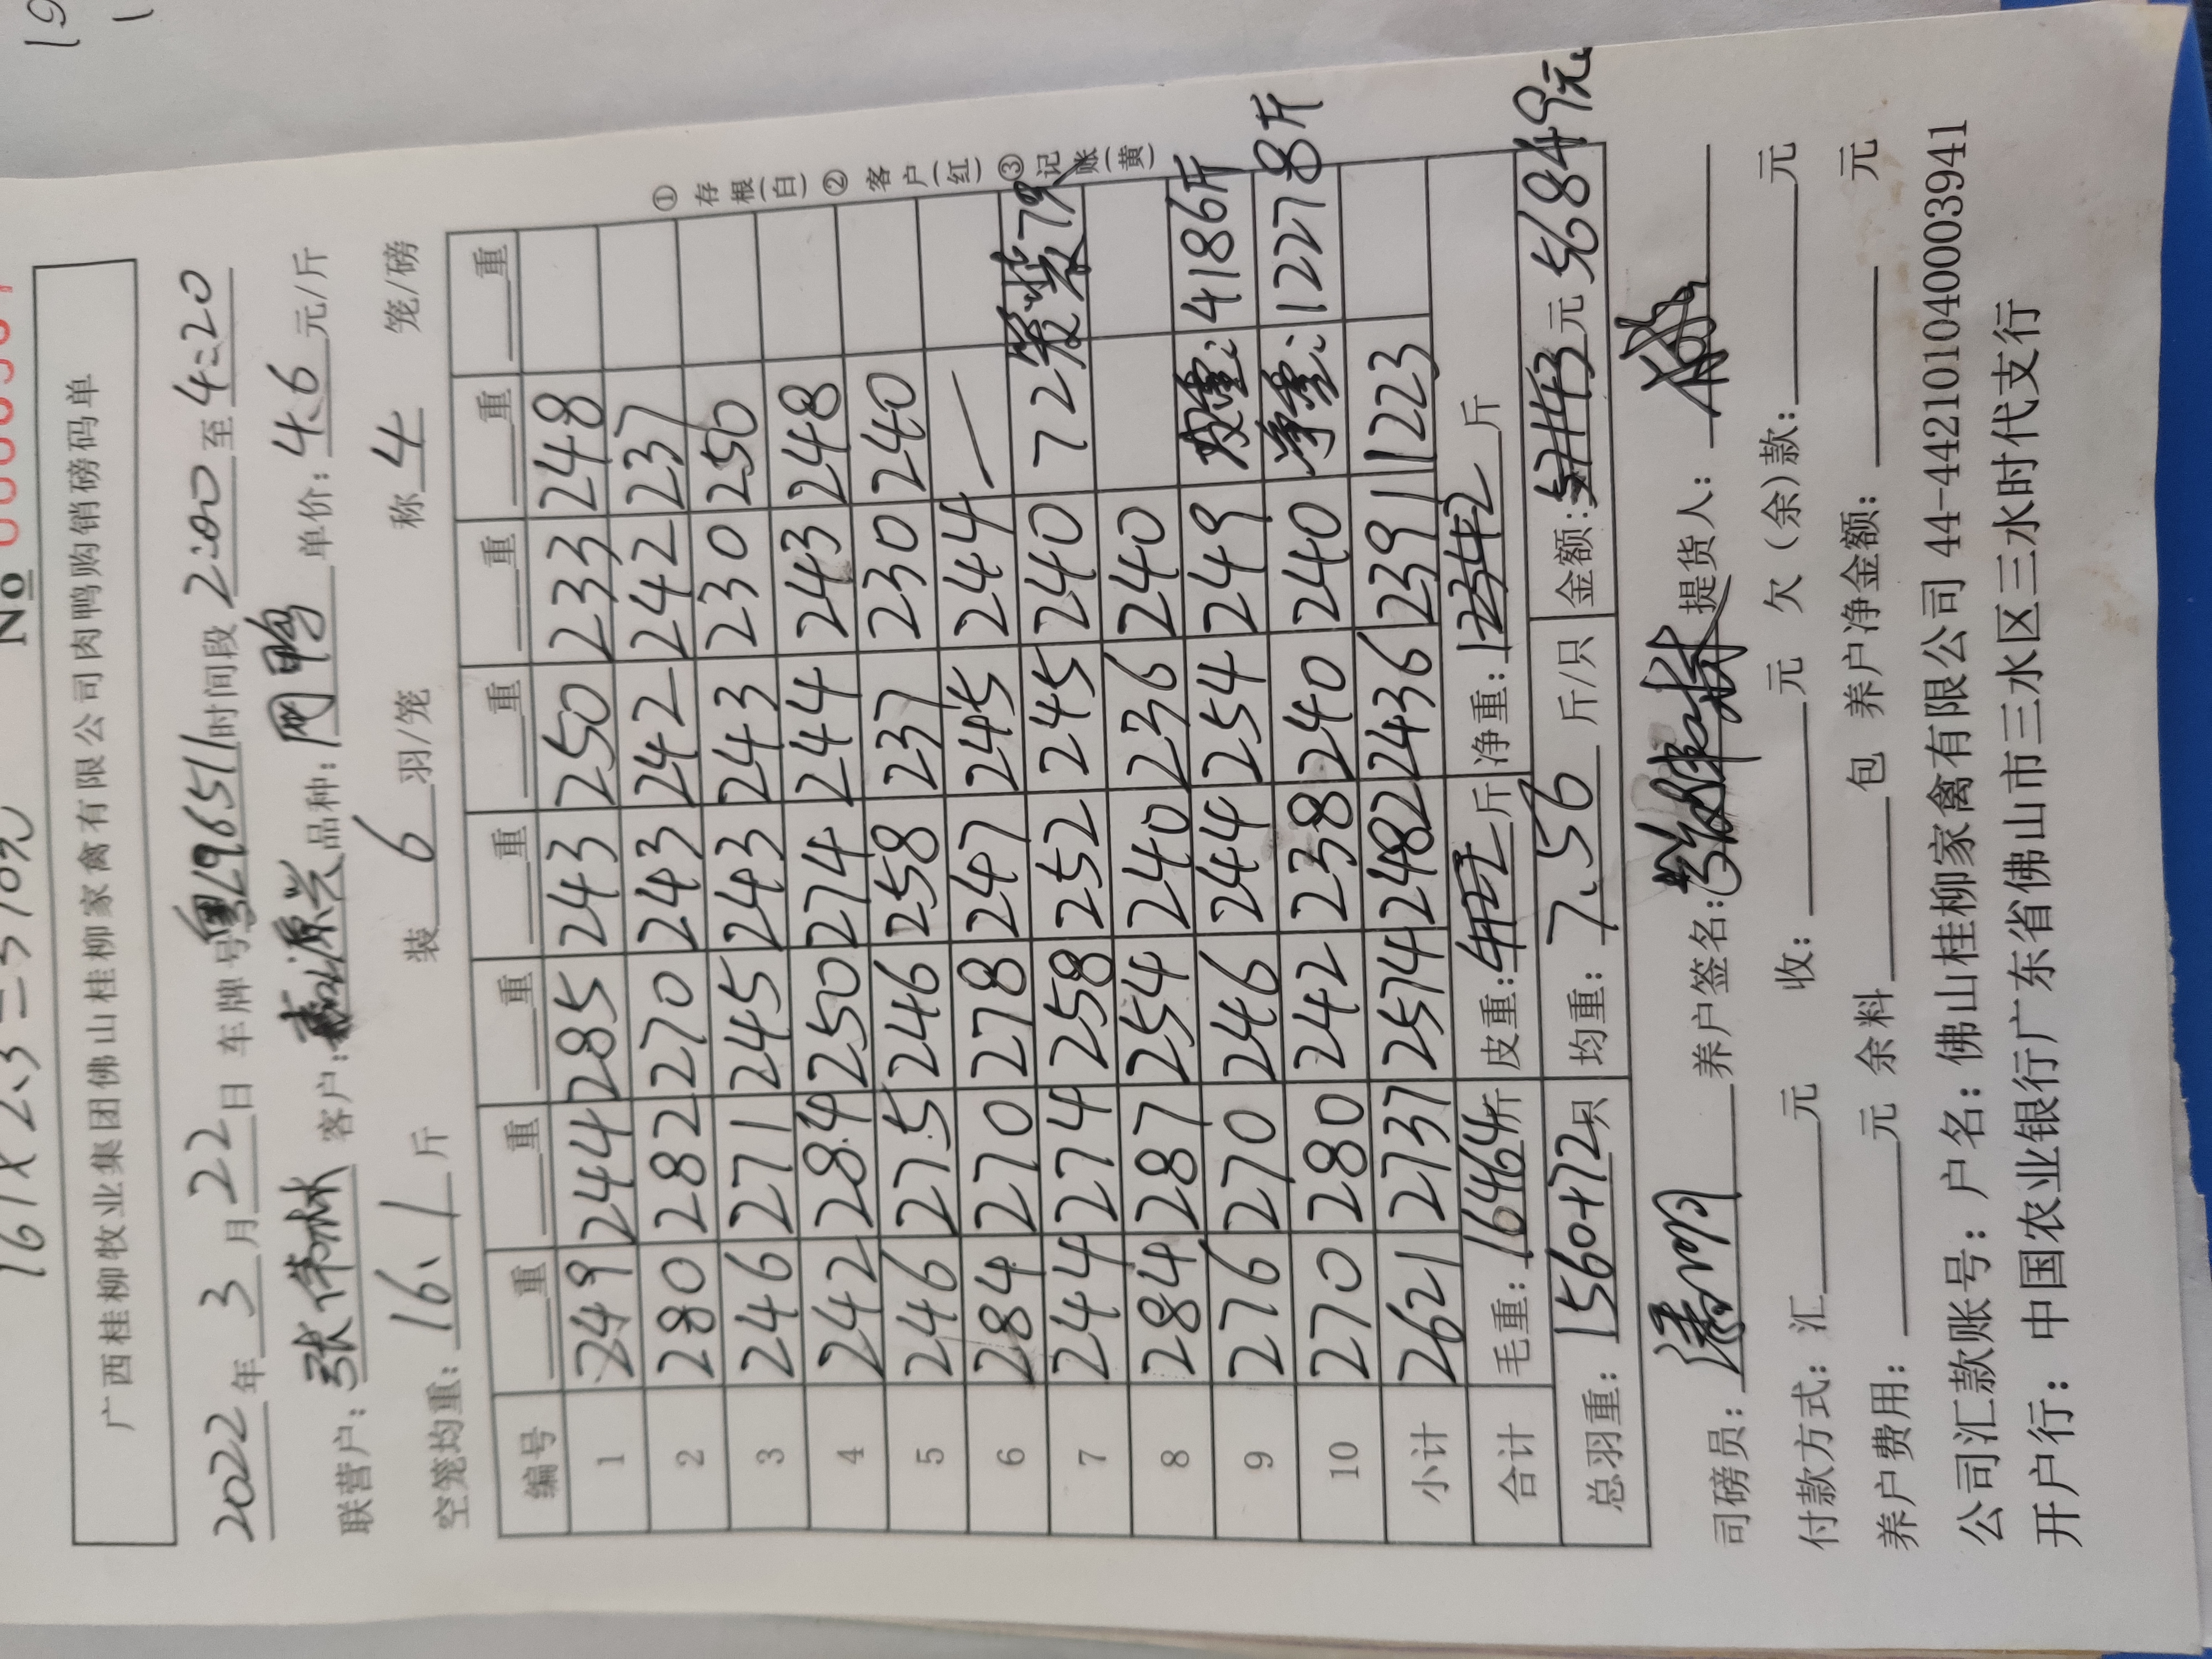 19
161×2.3=370元
No
广西桂柳牧业集团佛山桂柳家禽有限公司肉鸭购销磅码单
2022年3月22日 车牌号粤L96511时间段2:00至4:20
联营户:张伟林 客户:源兴品种: 单价:4.6元/斤
空笼均重:16.1斤 装6羽/笼 称4笼/磅
编号 重 重 重 重 重 重 重 重
1 249 244 285 243 250 233 248
2 280 282 270 243 242 242 237
3 246 271 245 243 243 230 250
4 242 284 250 274 244 243 248
5 246 275 246 258 237 230 240
6 284 270 278 247 245 244 —
7 244 274 258 252 245 240 72 装79
8 284 287 254 240 236 240
9 276 270 246 244 254 249 皮重:4186斤
10 270 280 242 238 240 240 净重:12278斤
小计 2621 2737 2574 2482 2436 2391 1223
合计 毛重:16464斤 皮重:斤 净重:12342斤
总羽重:1560+72只 均重:7.56斤/只 金额:元 56849元
①存根(白)②客户(红)③记账(黄)
司磅员: 养户签名: 提货人:
付款方式:汇元 收:元 欠(余)款:元
养户费用:元 余料包 养户净金额:元
公司汇款账号:户名:佛山桂柳家禽有限公司 44-442101040003941
开户行:中国农业银行广东省佛山市三水区三水时代支行